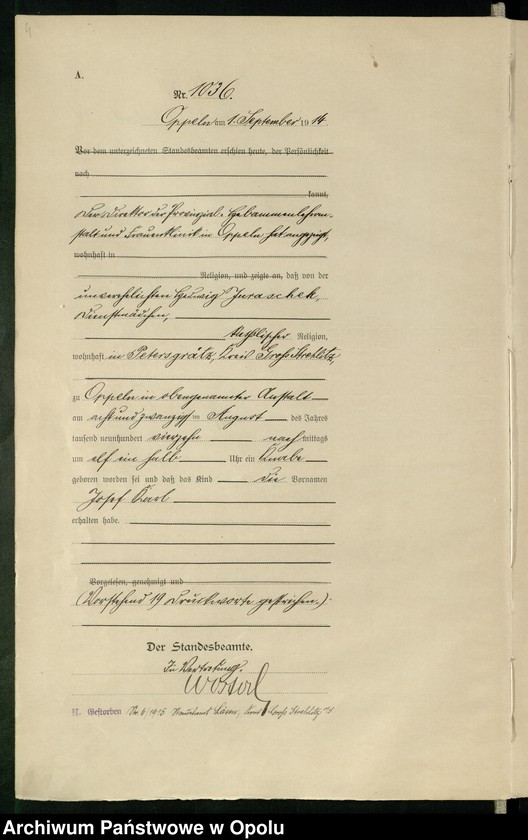 A.
Nr. 1036.
Oppeln am 1. September 1914
Vor dem unterzeichneten Standesbeamten erschien heute, der Persönlichkeit
nach
kannt,
Der Direktor der Provinzial-Hebammenlehran-
stalt und Frauenklinik in Oppeln hat angezeigt,
wohnhaft in
Religion, und zeigte an, daß von der
unverehelichten Hedwig Juraschek,
Dienstmädchen,
katholischer Religion,
wohnhaft in Petersgrätz, Kreis Groß Strehlitz,
zu Oppeln in obengenannter Anstalt
am acht und zwanzigsten August des Jahres
tausend neunhundert vierzehn nachmittags
um elf ein halb Uhr ein Knabe
geboren worden sei und daß das Kind die Vornamen
Josef Karl
erhalten habe.
Vorgelesen, genehmigt und
(Vorstehend 19 Druckworte gestrichen.)
Der Standesbeamte.
In Vertretung.
H. Gestorben Nr. 6/1915 Standesamt Kreis Groß Strehlitz
Archiwum Państwowe w Opolu